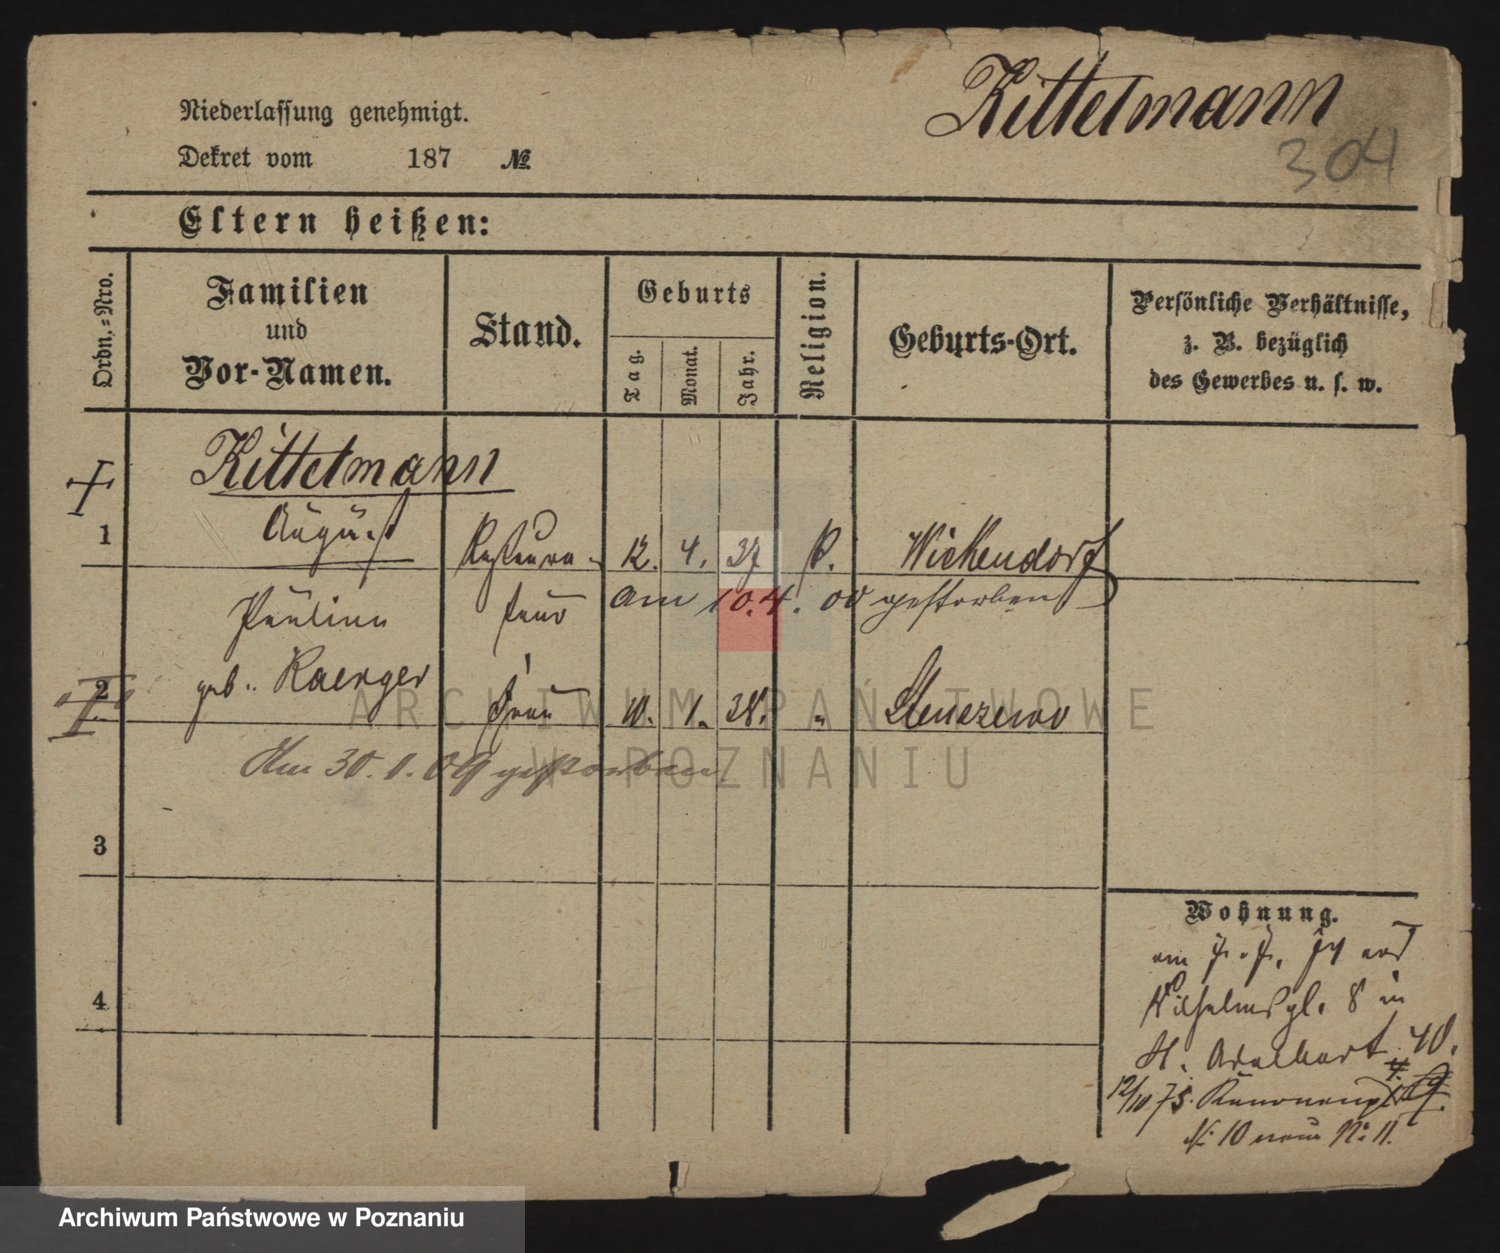 Kittelmann
304
Niederlassung genehmigt.
Dekret vom 187 №
Eltern heißen:
Ordn.-Nro.
Familien und Vor-Namen.
Stand.
Geburts
Tag.
Monat.
Jahr.
Religion.
Geburts-Ort.
Persönliche Verhältnisse,
z. B. bezüglich
des Gewerbes u. s. w.
Kittelmann
1 August Restaura- 12. 4. 37 P. Wickendorf
teur
am 10.4.00 gestorben
Pauline
2 geb. Raenger Frau 10. 1. 38. "
Am 30.1.09 gestorben
3
4
Wohnung.
Wilhelmspl. 8 in
St. Adalbert 40.
12/10 75. Kanonenpl.
№ 10 neue № 11.
ARCHIWUM PAŃSTWOWE
W POZNANIU
Archiwum Państwowe w Poznaniu